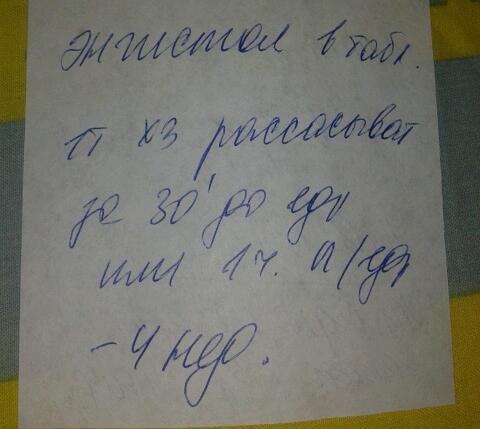 Энгистол в табл.
1т х3 рассасыват
за 30' до еды
или 1ч. п/еды
- 4 нед.